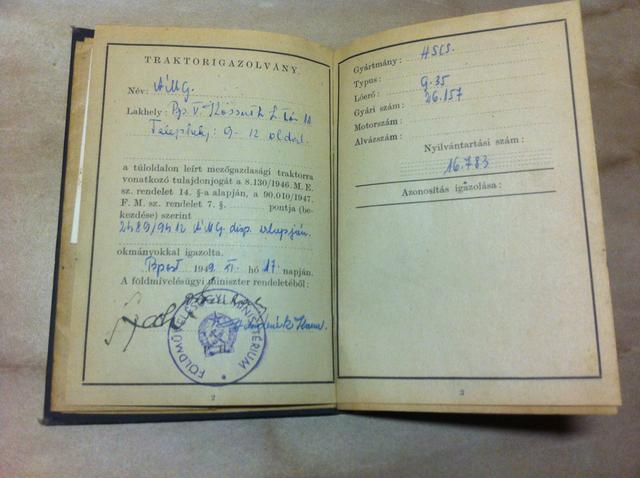 TRAKTORIGAZOLVÁNY.
Név: ÁMG.
Lakhely: Bp. V. Kossuth L. tér 11
Telephely: 9-12 oldal.
a túloldalon leírt mezőgazdasági traktorra
vonatkozó tulajdonjogát a 8.130/1946. M. E.
sz. rendelet 14. §-a alapján, a 90.010/1947.
F. M. sz. rendelet 7. §. pontja (be-
kezdése) szerint
ÁMG disp. alapján.
okmányokkal igazolta.
Bpest 1949 XI. hó 17 napján.
A földmívelésügyi miniszter rendeletéből:
FÖLDMŰVELÉSÜGYI MINISZTÉRIUM
2
Gyártmány: HSCS.
Typus: G. 35
Lóerő:
Gyári szám: 26.157
Motorszám:
Alvázszám:
Nyilvántartási szám:
16.783
Azonosítás igazolása:
3